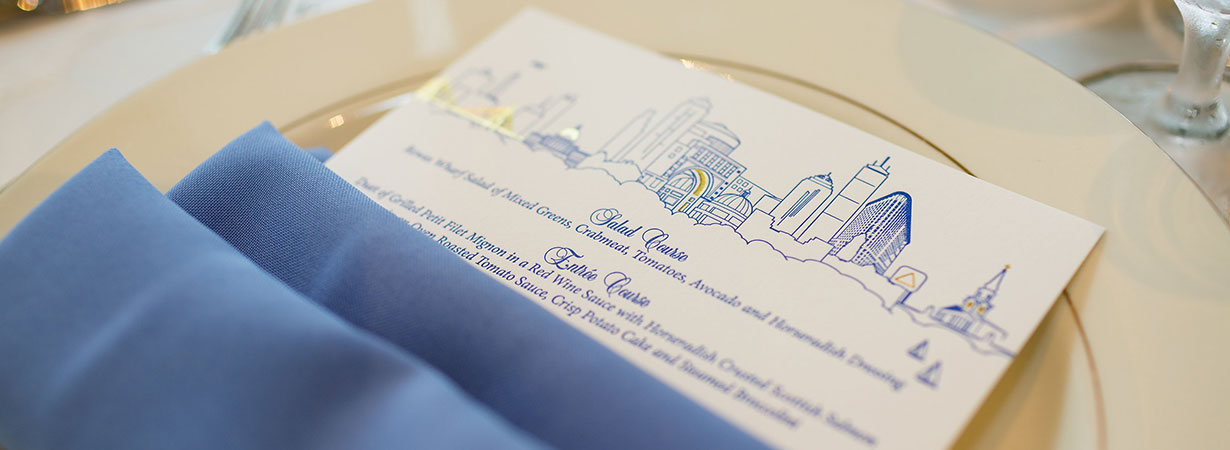 Salad Course
Rowes Wharf Salad of Mixed Greens, Crabmeat, Tomatoes, Avocado and Horseradish Dressing
Entrée Course
Duet of Grilled Petit Filet Mignon in a Red Wine Sauce with Horseradish Crusted Scottish Salmon
Oven Roasted Tomato Sauce, Crisp Potato Cake and Steamed Broccolini